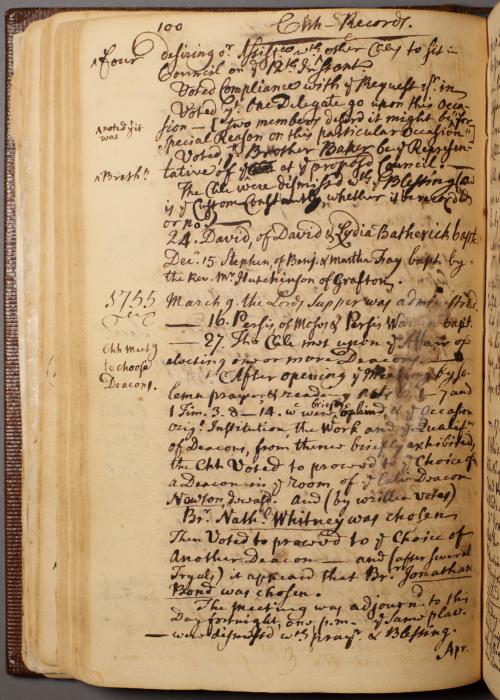 100 Chh-Records.
^four desiring or Assistce with other Chhs to sit in
Council on ye 12th Instant
Voted Compliance with ye Request
Voted yt One Delegate go upon this Occa-
^ noted yt it was sion — two members desird it might be for
special Reason on this particular Occasion
Voted yt Brother Baker be ye Represen-
^ Brethn tative of at ye propos'd Council. —
The Chh were dismissed wth ye Blessing (as
is ye Custom Constantly, whether it be recorded
or no)
24. David, of David & Lydia Batherick bapt.
Decr 15. Stephen of Benj. & Martha Fay bapt. by
the Rev. Mr Hutchinson of Grafton.
1755 March 9. the Lords Supper was administred.
— 16. Persis of Moses & Persis bapt.
— 27. The Chh met upon ye Affair of
Chh meetg to choose Deacons. electing one or more Deacons.
After opening ye Meeting by so-
lemn prayer, & reading Acts 6. 1-7 and
1 Tim. 3. 8-14. wc were briefly explaind, & ye Occasion
origl Institution, the Work and ye Qualifns
of Deacons, from thence briefly exhibited,
the Chh Voted to proceed to ye Choice of
a Deacon in ye room of ye late Deacon
Newton, deceasd. And (by written Votes)
Br. Nathl Whitney was chosen
Then Voted to proceed to ye Choice of
Another Deacon — and (after several
Tryals) it appeard that Br. Jonathan
Bond was chosen.
The meeting was adjournd to this
Day fortnight, one p.m. ye same place.
— were dismissd wth prayr & Blessing.
Apr.